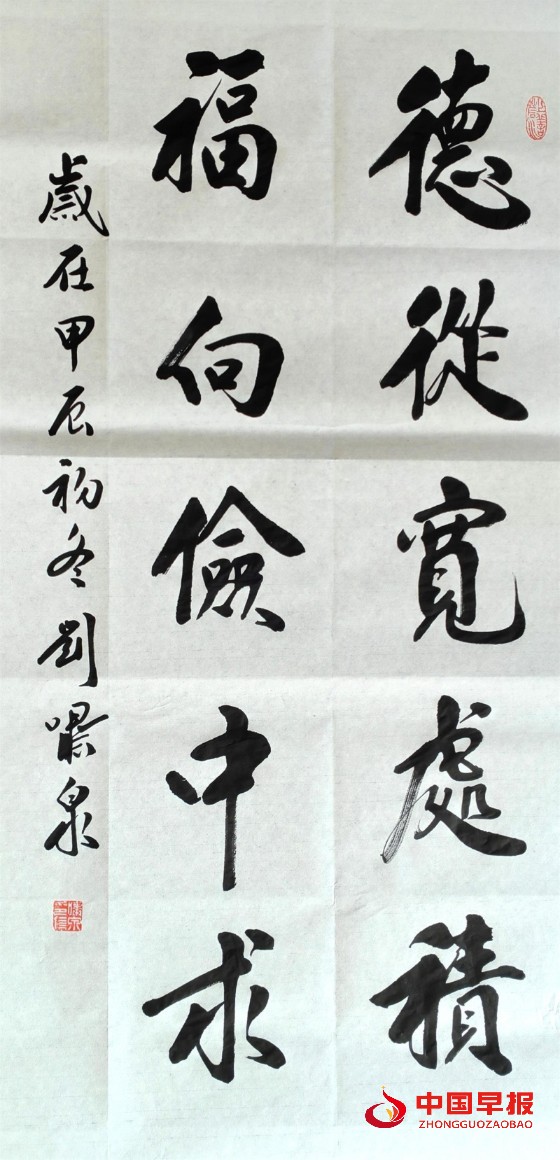 德從寬處積
福向儉中求
歲在甲辰初冬劉噀泉
中国早报
ZHONGGUOZAOBAO